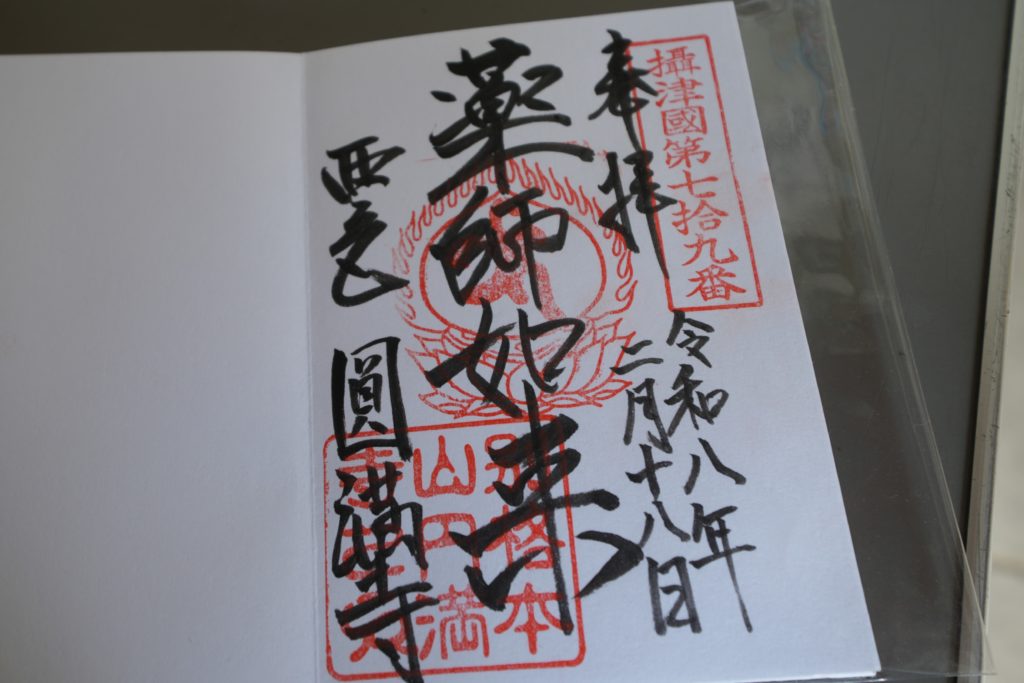 攝津國第七拾九番
奉拝
令和八年
二月十八日
薬師如来
西宮
圓満寺
山円満
本